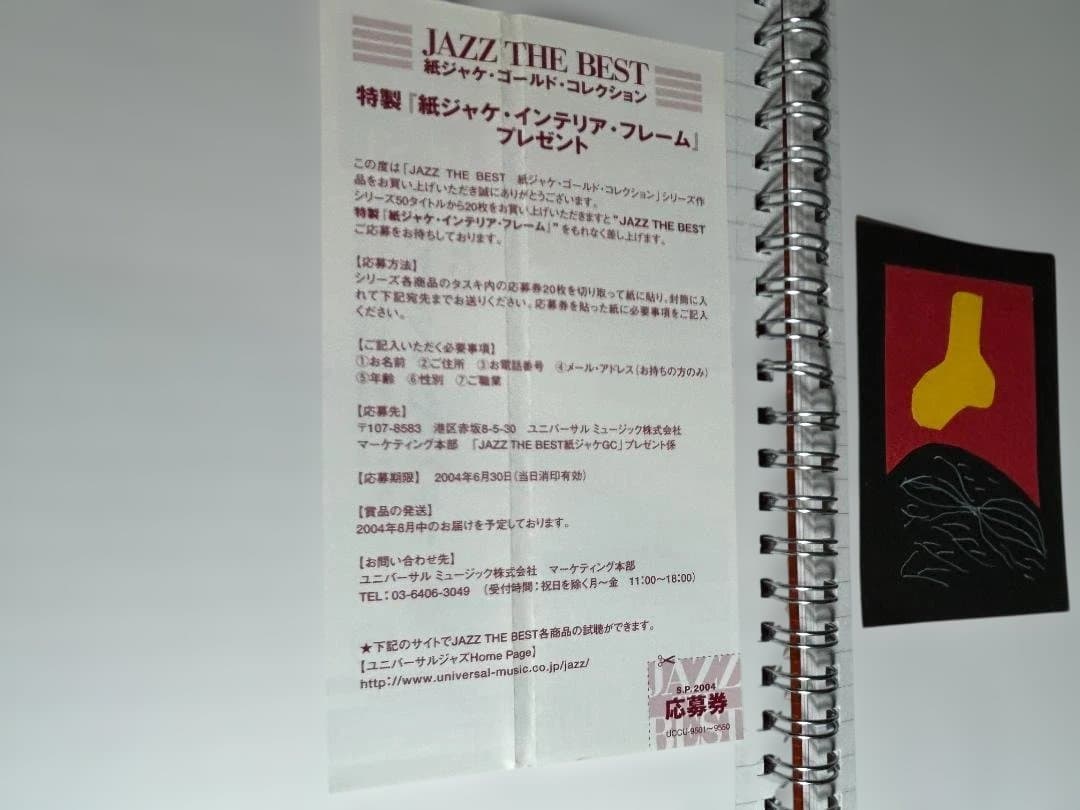 JAZZ THE BEST
紙ジャケ・ゴールド・コレクション
特製『紙ジャケ・インテリア・フレーム』
プレゼント
この度は「JAZZ THE BEST 紙ジャケ・ゴールド・コレクション」シリーズ作
品をお買い上げいただき誠にありがとうございます。
シリーズ50タイトルから20枚をお買い上げいただきますと"JAZZ THE BEST
特製『紙ジャケ・インテリア・フレーム』"をもれなく差し上げます。
ご応募をお待ちしております。
【応募方法】
シリーズ各商品のタスキ内の応募券20枚を切り取って紙に貼り、封筒に入
れて下記宛先までお送りください。応募券を貼った紙に必要事項をご記入
ください。
【ご記入いただく必要事項】
①お名前 ②ご住所 ③お電話番号 ④メール・アドレス(お持ちの方のみ)
⑤年齢 ⑥性別 ⑦ご職業
【応募先】
〒107-8583 港区赤坂8-5-30 ユニバーサル ミュージック株式会社
マーケティング本部 「JAZZ THE BEST紙ジャケGC」プレゼント係
【応募期限】 2004年6月30日(当日消印有効)
【賞品の発送】
2004年8月中のお届けを予定しております。
【お問い合わせ先】
ユニバーサル ミュージック株式会社 マーケティング本部
TEL:03-6406-3049 (受付時間:祝日を除く月〜金 11:00〜18:00)
★下記のサイトでJAZZ THE BEST各商品の試聴ができます。
【ユニバーサルジャズHome Page】
http://www.universal-music.co.jp/jazz/
JAZZ
S.P.2004
応募券
UCCU-9501〜9550
BEST